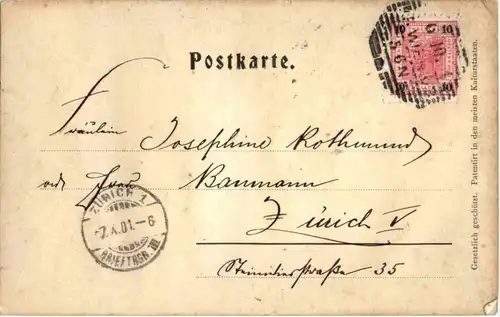 Postkarte.
Fräulein Josephine Rothmund
Frau Baumann
Zürich V
35
10 10
ZÜRICH 1
7.X.01.-6
BRIEFTRGR. III
Gesetzlich geschützt. Patentirt in den meisten Kulturstaaten.